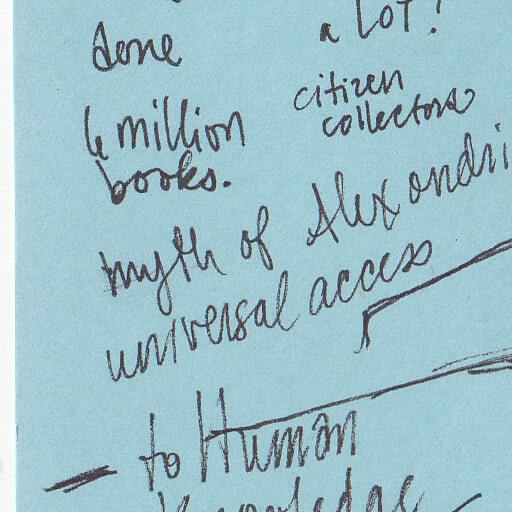 done
a LOT!
6 million
books.
citizen
collectors
myth of Alexandri
universal access
to Human
Knowledge